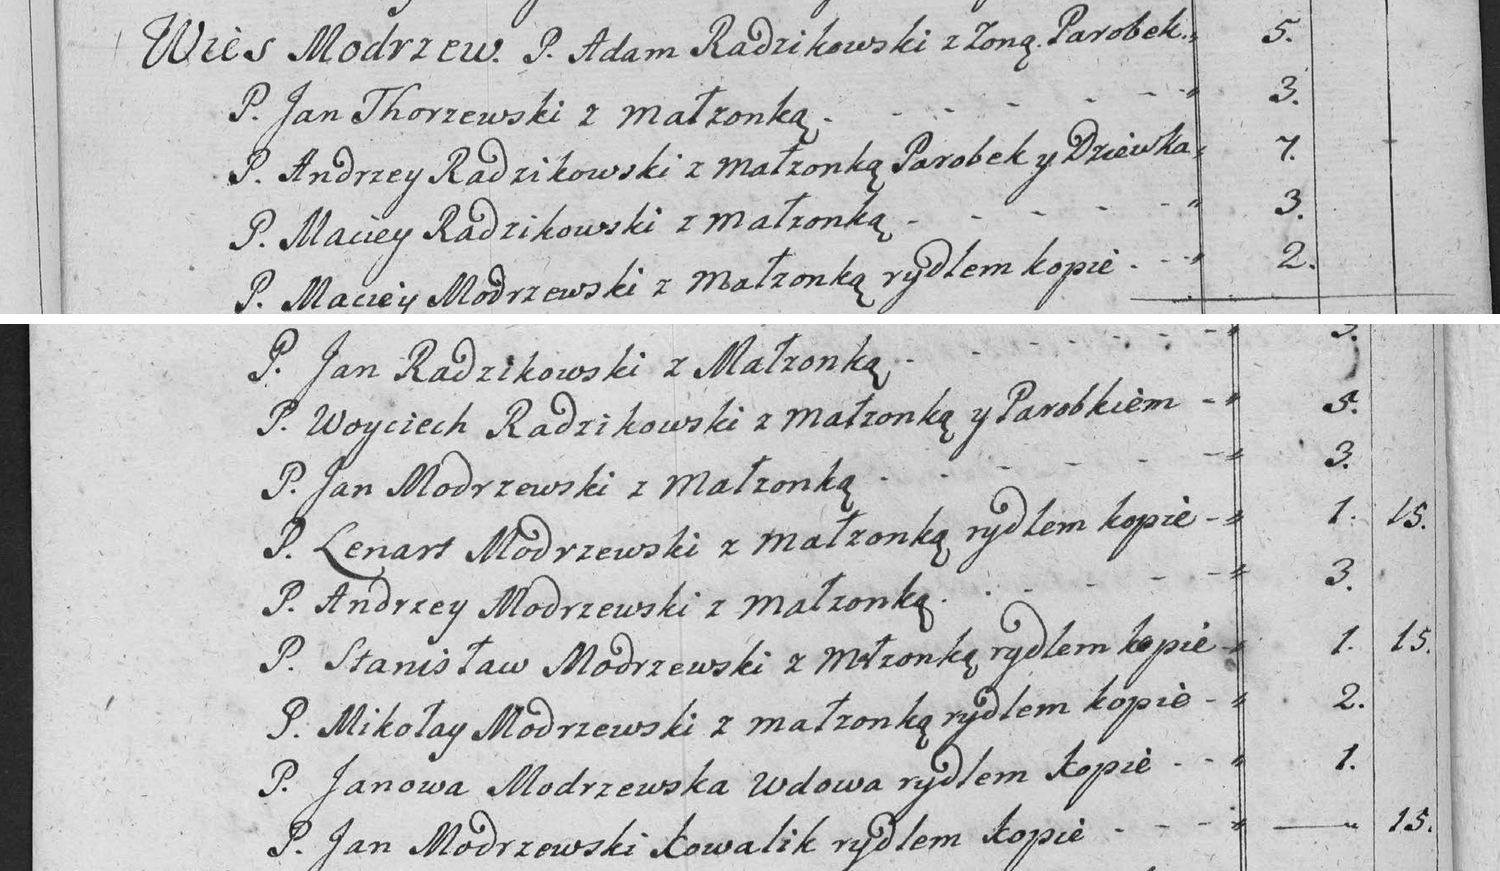 Wiès Modrzew. P. Adam Radzikowski z Zoną. Parobek. „ 5.
P. Jan Thorzewski z małzonką. - - - - „ 3.
P. Andrzey Radzikowski z małzonką Parobek y Dziewka „ 7.
P. Maciey Radzikowski z małzonką - - - - „ 3.
P. Maciey Modrzewski z małzonką rydlem kopiè . - - „ 2.
P. Jan Radzikowski z Małzonką - - - - - „ 3.
P. Woyciech Radzikowski z małzonką y Parobkièm - „ 5.
P. Jan Modrzewski z małzonką - - - - - „ 3.
P. Lenart Modrzewski z małzonką rydlem kopiè - „ 1. 15.
P. Andrzey Modrzewski z małzonką . - - - - „ 3.
P. Stanisław Modrzewski z młzonką rydlem kopiè - „ 1. 15.
P. Mikołay Modrzewski z małzonką rydlem kopiè - „ 2.
P. Janowa Modrzewska wdowa rydlem kopiè - - „ 1.
P. Jan Modrzewski kowalik rydlem kopiè - - - „ — „ 15.